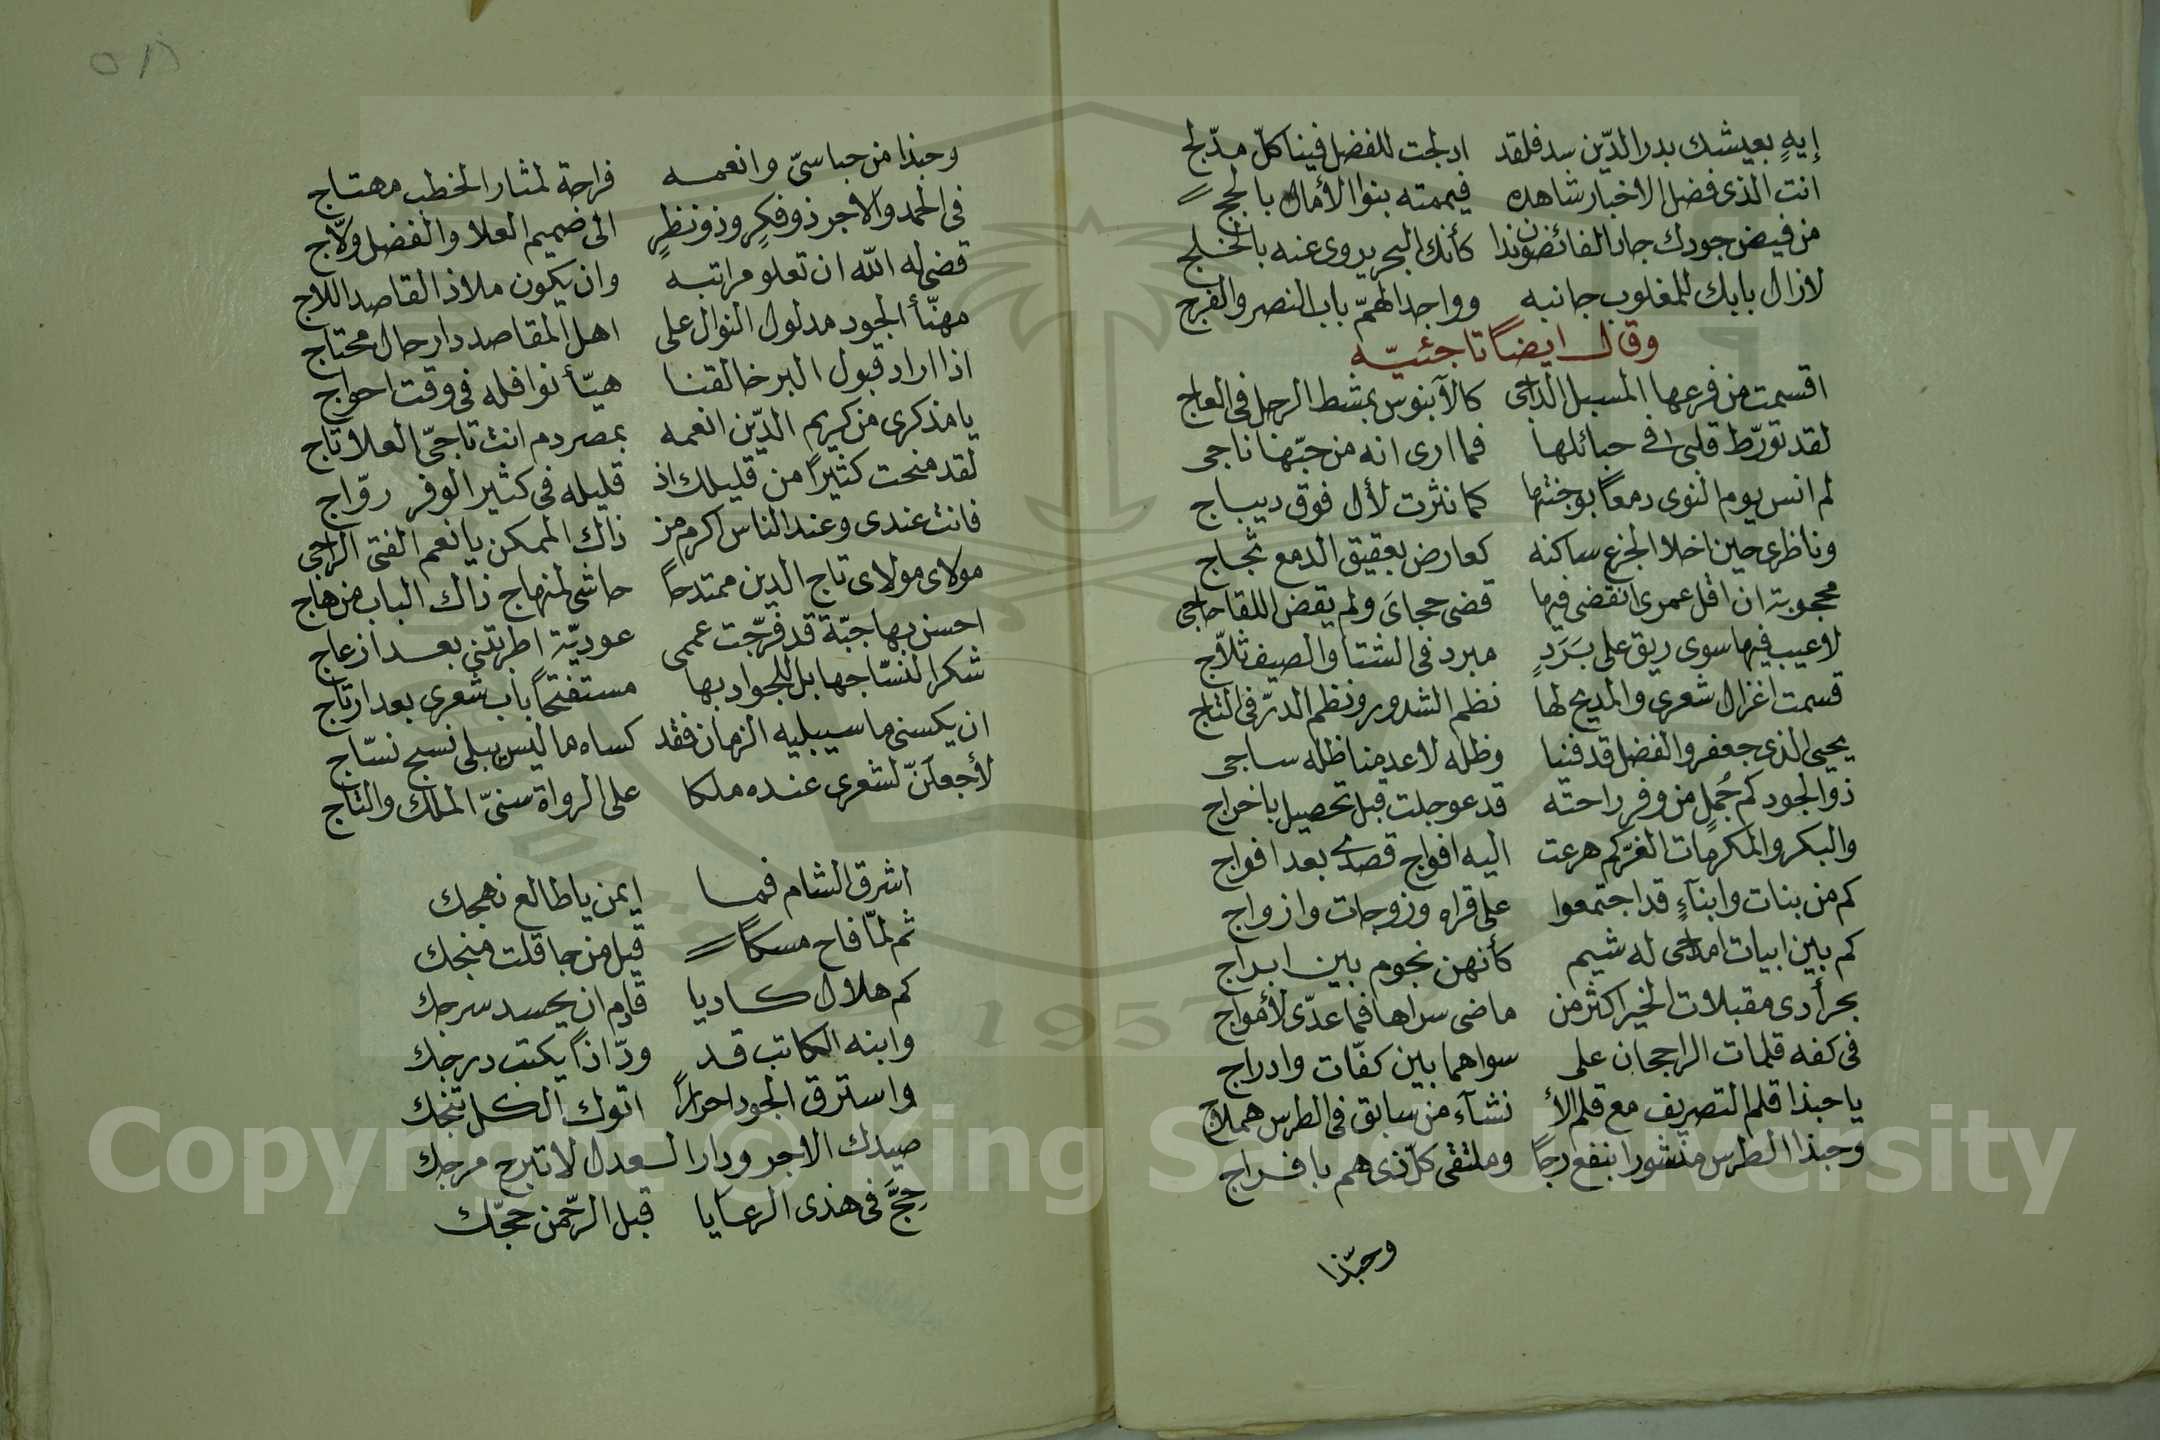 إيهٍ بعيشك بدر الدّين سد فلقد ادلجت للفضل فينا كلّ مدّلج
انت الذى فضل الاخبار شاهده فيممته بنوا الأمال بالحجج
من فيض جودك جاد الفائضون ندا كأنك البحر يروى عنه بالخلج
لازال بابك للمغلوب جانبه وواجد الهمّ باب النصر والفرج
وقال ايضاً تاجئيّه
اقسمت من فرعها المسبل الداجى كالآبنوس بمشط الرجل فى العاج
لقد تورّط قلبى فى حبائلها فما ارى انه من حبّها ناجى
لم انس يوم النوى دمعاً بوجنتها كما نثرت لأل فوق ديباج
وناظرى حين اخلا الجزع ساكنه كعارض بعقيق الدمع ثجاج
محجوبة ان اقل عمرى انقضى فيها قضى حجاىَ ولم يقض اللقا حاجى
لاعيب فيها سوى ريق على بَرَدٍ مبرد فى الشتا والصيف ثلاّج
قسمت اغزال شعرى والمديح لها نظم الشدور ونظم الدرّ فى التاج
يحيى الذى جعفر والفضل قد فنيا وظله لاعدمنا ظله ساجى
ذو الجود كم جُملٍ من وفر راحته قد عوجلت قبل تحصيل باخراج
والبكر والمكرمات الغرّ كم هرعت اليه افواج قصدى بعد افواج
كم من بنات وابنآءٍ قد اجتمعوا على قراه وزوجات وازواج
كم بين ابيات امداحى له شيم كأنهن نجوم بين ابراج
بحر أدى مقبلات الخير اكثر من ماضى سراها فما عدّى لأمواج
فى كفه قلمات الراجحان على سواهما بين كفّات وادراج
يا حبذا قلم التصريف مع قلم الأ نشآء من سابق فى الطرس هملاج
وحبذا الطرس منشورا بنفع رجاً وملتقى كلّ ذى هم بافراج
وحبّذا
وحبذا من حباسىّ وانعمه فراحة لمثار الخطب مهتاج
فى الحمد والاجر ذو فكرٍ وذو نظرٍ الى ضميم العلا والفضل ولاّج
قضى له الله ان تعلو مراتبه وان يكون ملاذ القاصد اللاج
مهنّأ الجود مدلول النوال على اهل المقاصد دار حال محتاج
اذا اراد قبول البر خالقنا هيّأ نوافله فى وقت احواج
يا مذكرى من كريم الدّين انعمه بمصر دم انت تاجىّ العلا تاج
لقد منحت كثيرًا من قليلك اذ قليله فى كثير الوفر روّاج
فانت عندى وعند الناس اكرم من ذاك الممكن يا نعم الفتى الراجى
مولاى مولاى تاج الدين ممتدحاً حاشى لمنهاج ذاك الباب من هاج
احسن بها جبّة قد فرّجت عممى عوديّة اطربتنى بعد ازعاج
شكرا لنسّاجها بل للجواد بها مستفتحاً باب شعرى بعد ارتاج
ان يكسنى ما سيبليه الزمان فقد كساه ما ليس يبلى نسج نسّاج
لأجعلنّ لشعرى عنده ملكا على الرواة سنىّ الملك والتاج
اشرق الشام فما ايمن يا طالع نهجك
ثم لمّا فاح مسكاً قيل من جا قلت منجك
كم هلال كاديا قادم ان يحسد سرجك
وابنه الكاتب قد ودّ اذاً يكتب درجك
واسترق الجود احراراً اتوك الكل تنجك
صيدك الاجر ودار السعدل لا تبرح مرجك
حِجَّ فى هذى الرعايا قبل الرّحمن حجّك
Copyright © King Saud University
1957